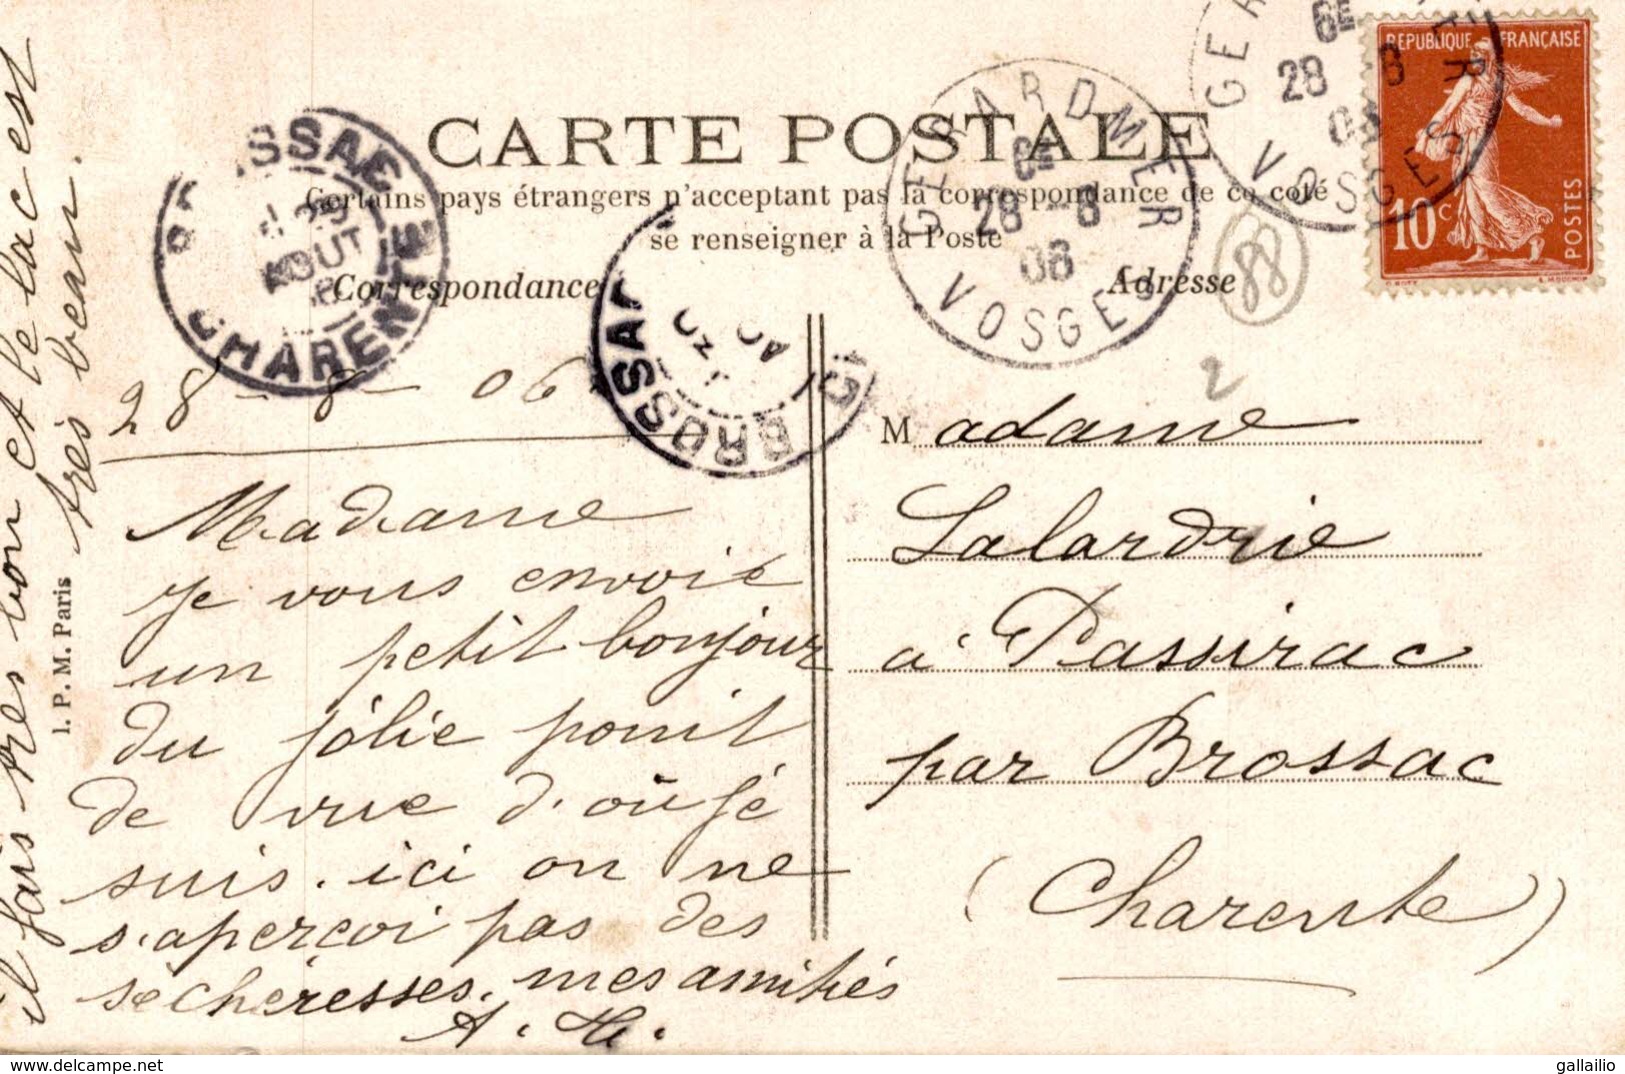 CARTE POSTALE
Certains pays étrangers n'acceptant pas la correspondance de ce coté
se renseigner à la Poste
Correspondance
Adresse
REPUBLIQUE FRANÇAISE
10c
POSTES
GERARDMER
6E
28 -8
06
VOSGES
6E
28 8
VOSGES
BROSSAC
AOUT
CHARENTE
BROSSAC
88
2
28 - 8 - 06
Madame
Je vous envoie
un petit bonjour
du jolie point
de vue d'où je
suis. ici on ne
s'aperçoi pas des
sécheresses. mes amitiés
A. H.
il fais très bon et le lac est
très beau.
I. P. M. Paris
Madame
Lalardrie
à Passirac
par Brossac
(Charente)
delcampe.net
gallailio